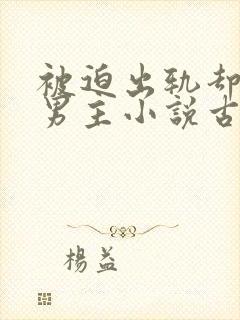 被迫出轨却
男主小說古
楊益